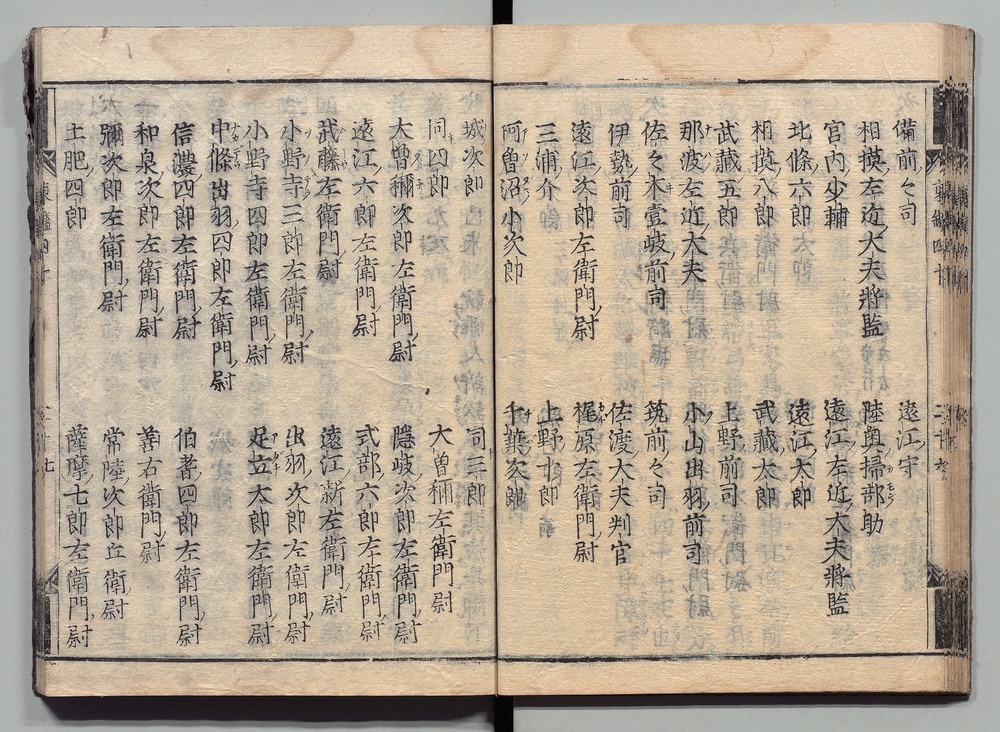 備前々司 遠江守
相摸左近大夫將監 陸奥掃部助
宮内少輔 遠江左近大夫將監
北條六郎 遠江太郎
相摸八郎 武藏太郎
武藏五郎 上野前司
那波左近大夫 小山出羽前司
佐々木壹岐前司 筑前々司
伊勢前司 佐渡大夫判官
遠江次郎左衛門尉 梶原左衛門尉
三浦介 上野十郎
阿曽沼小次郎 千葉次郎
城次郎 同三郎
同四郎 大曽禰左衛門尉
大曽禰次郎左衛門尉 隠岐次郎左衛門尉
遠江六郎左衛門尉 式部六郎左衛門尉
武藤左衛門尉 遠江新左衛門尉
小野寺三郎左衛門尉 出羽次郎左衛門尉
小野寺四郎左衛門尉 足立太郎左衛門尉
中條出羽四郎左衛門尉
信濃四郎左衛門尉 伯耆四郎左衛門尉
和泉次郎左衛門尉 善右衛門尉
彌次郎左衛門尉 常陸次郎兵衛尉
土肥四郎 薩摩七郎左衛門尉